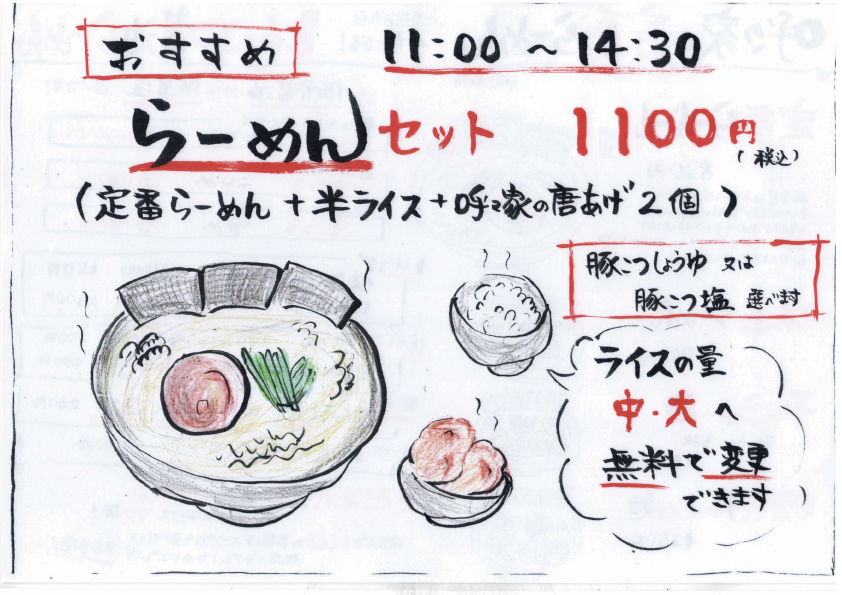 おすすめ 11:00 〜 14:30
らーめんセット 1100円
(税込)
(定番らーめん + 半ライス + 呼々家の唐あげ 2個)
豚こつしょうゆ 又は
豚こつ塩 選べます
ライスの量
中・大へ
無料で変更
できます